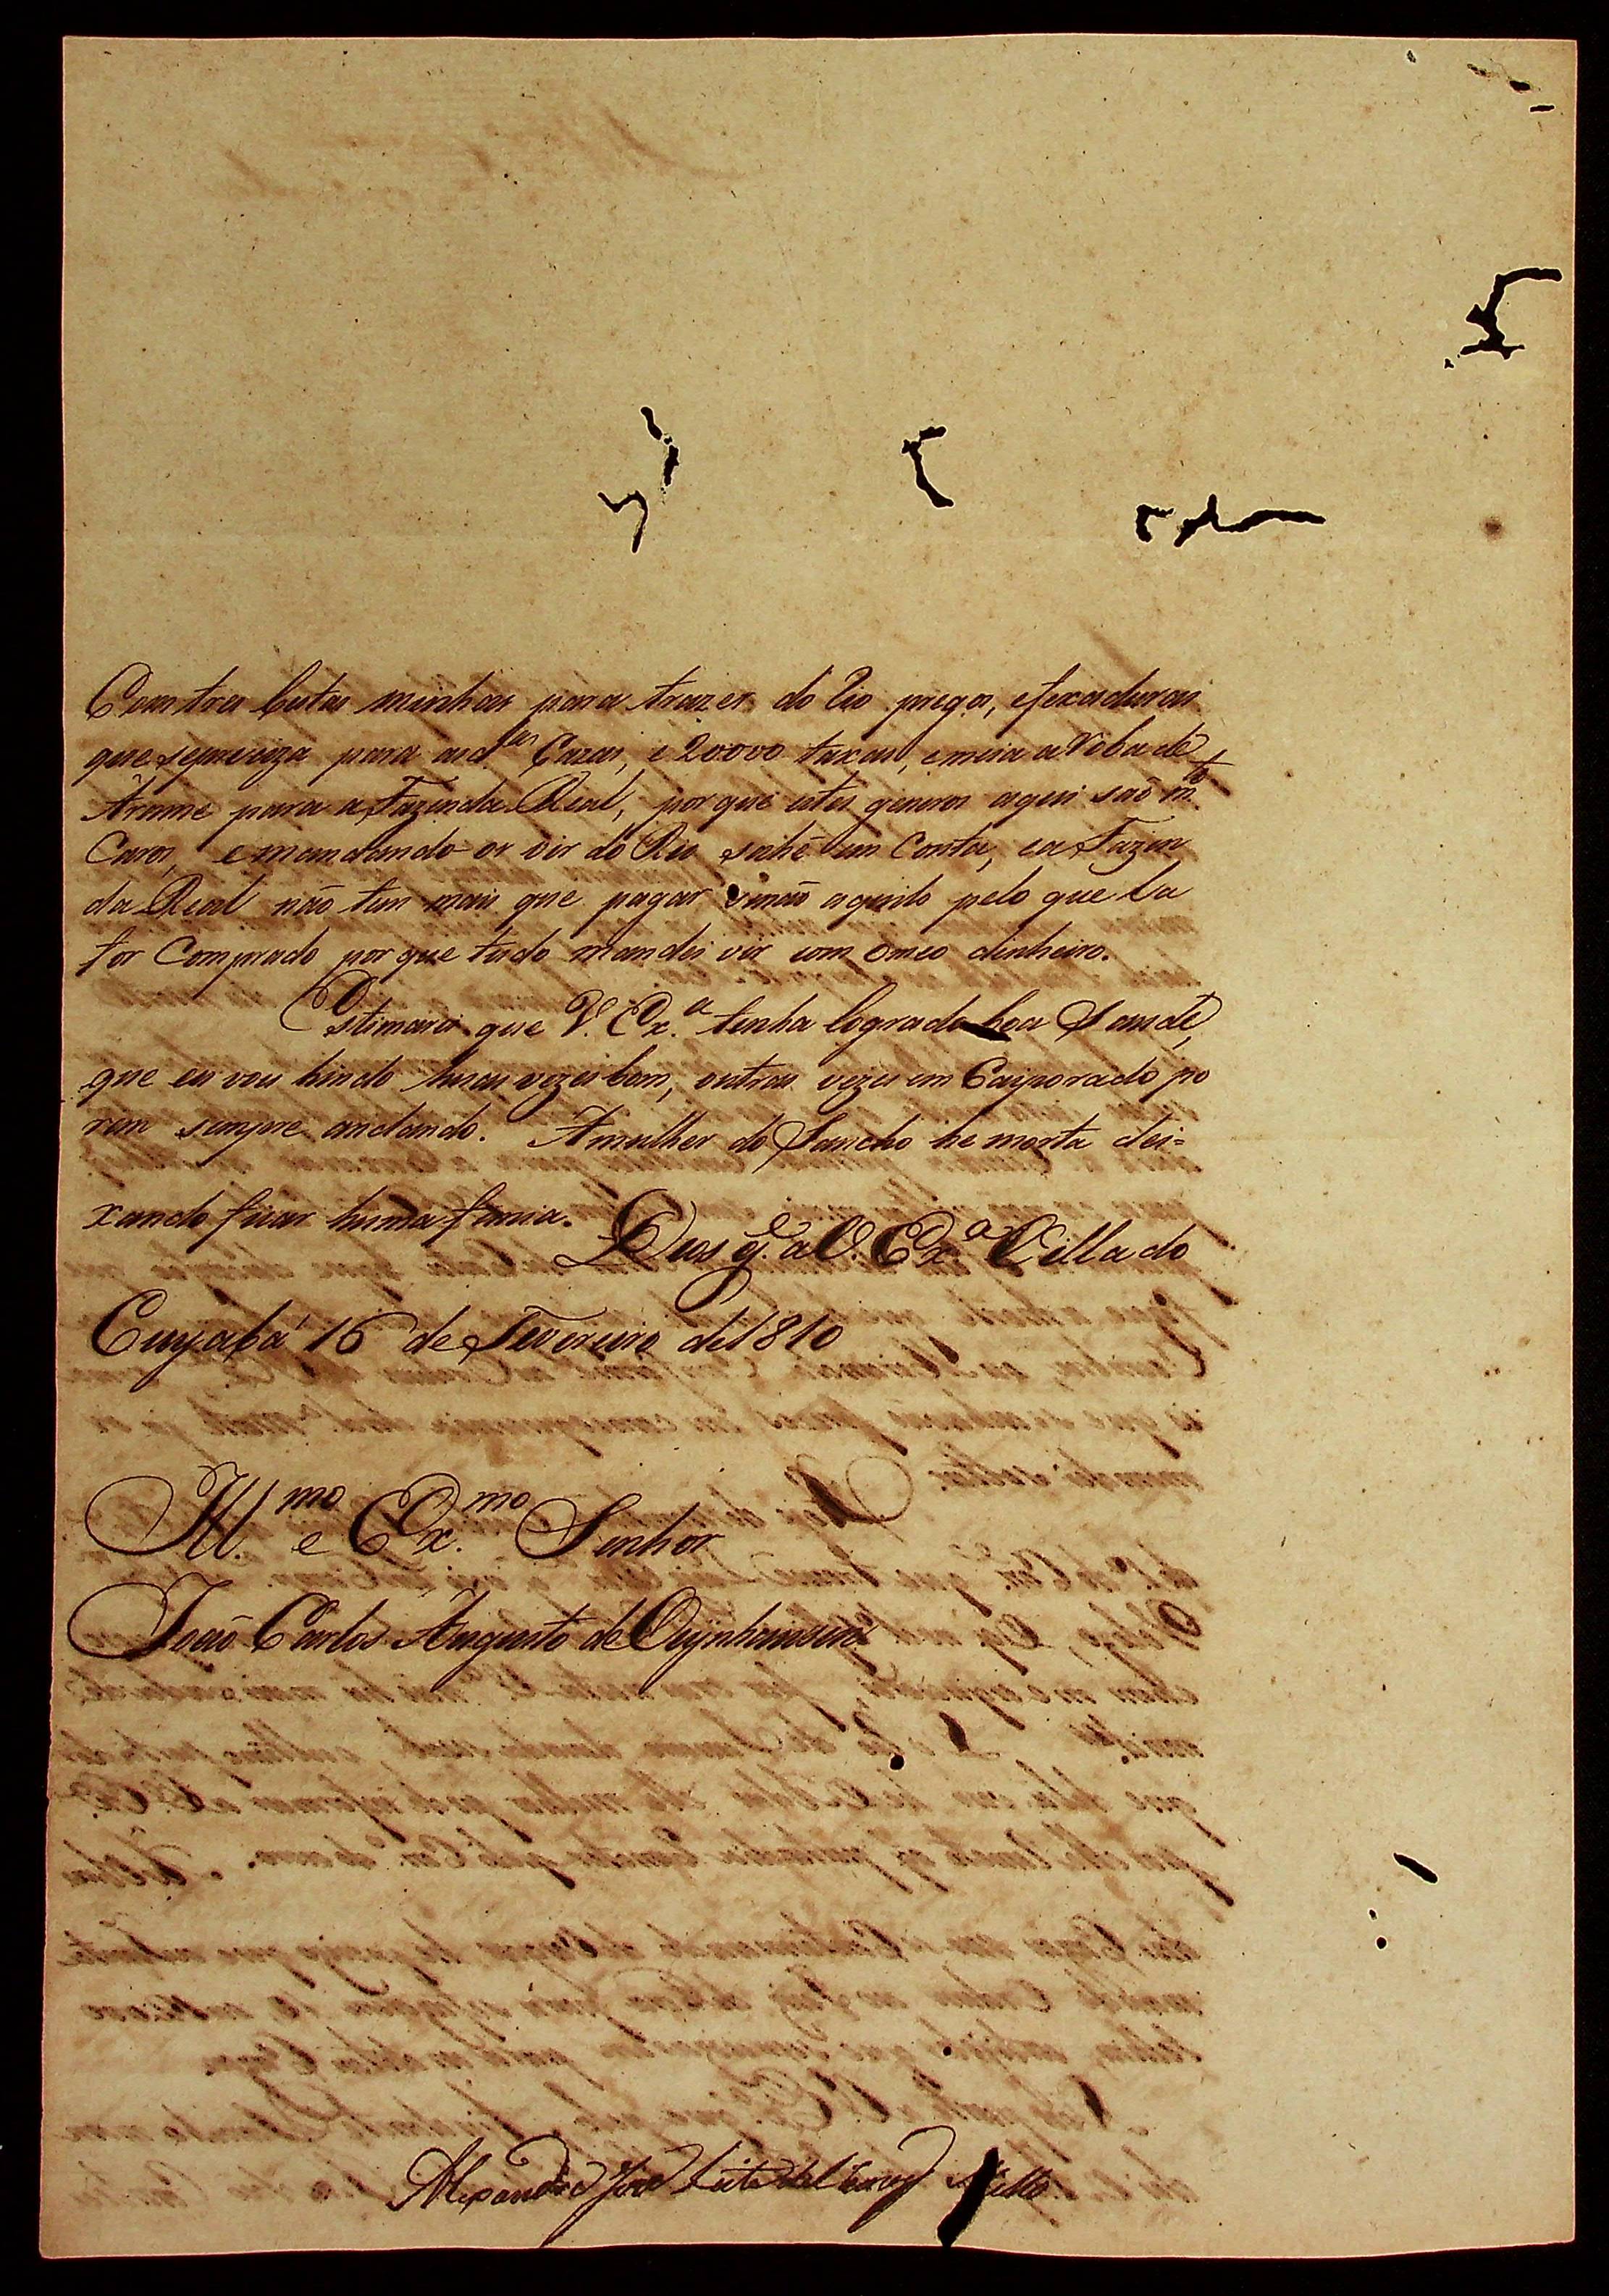 Com tres bestas minhas para trazer do Rio pregos, efexaduras
que sepreciza para asd.as Cazas, e 20000 taxas, emeia aRoba de
Arame para a Fazenda Real, por que estes generos aqui saõ m.to
Caros, emandando os vir do Rio sahe em Conta, ea Fazen
da Real naõ tem mais que pagar senaõ aquilo pelo que la
for Comprado por que tudo mandei vir com omeo dinheiro.
Estimarei que V. Ex.a tenha logrado boa Saude,
que eu vou hindo huas vezes bem, outras vezes em Caiporado po
rem sempre andando. Amulher do Sancho he morta dei=
xando ficar huma femia.
Deos g.e a V. Ex.a Villa do
Cuyabá 16 de Fevereiro de 1810
Ill.mo e Ex.mo Senhor
Joaõ Carlos Augusto de Oeynhausen
Alexandre José Leite de Chaves Mello